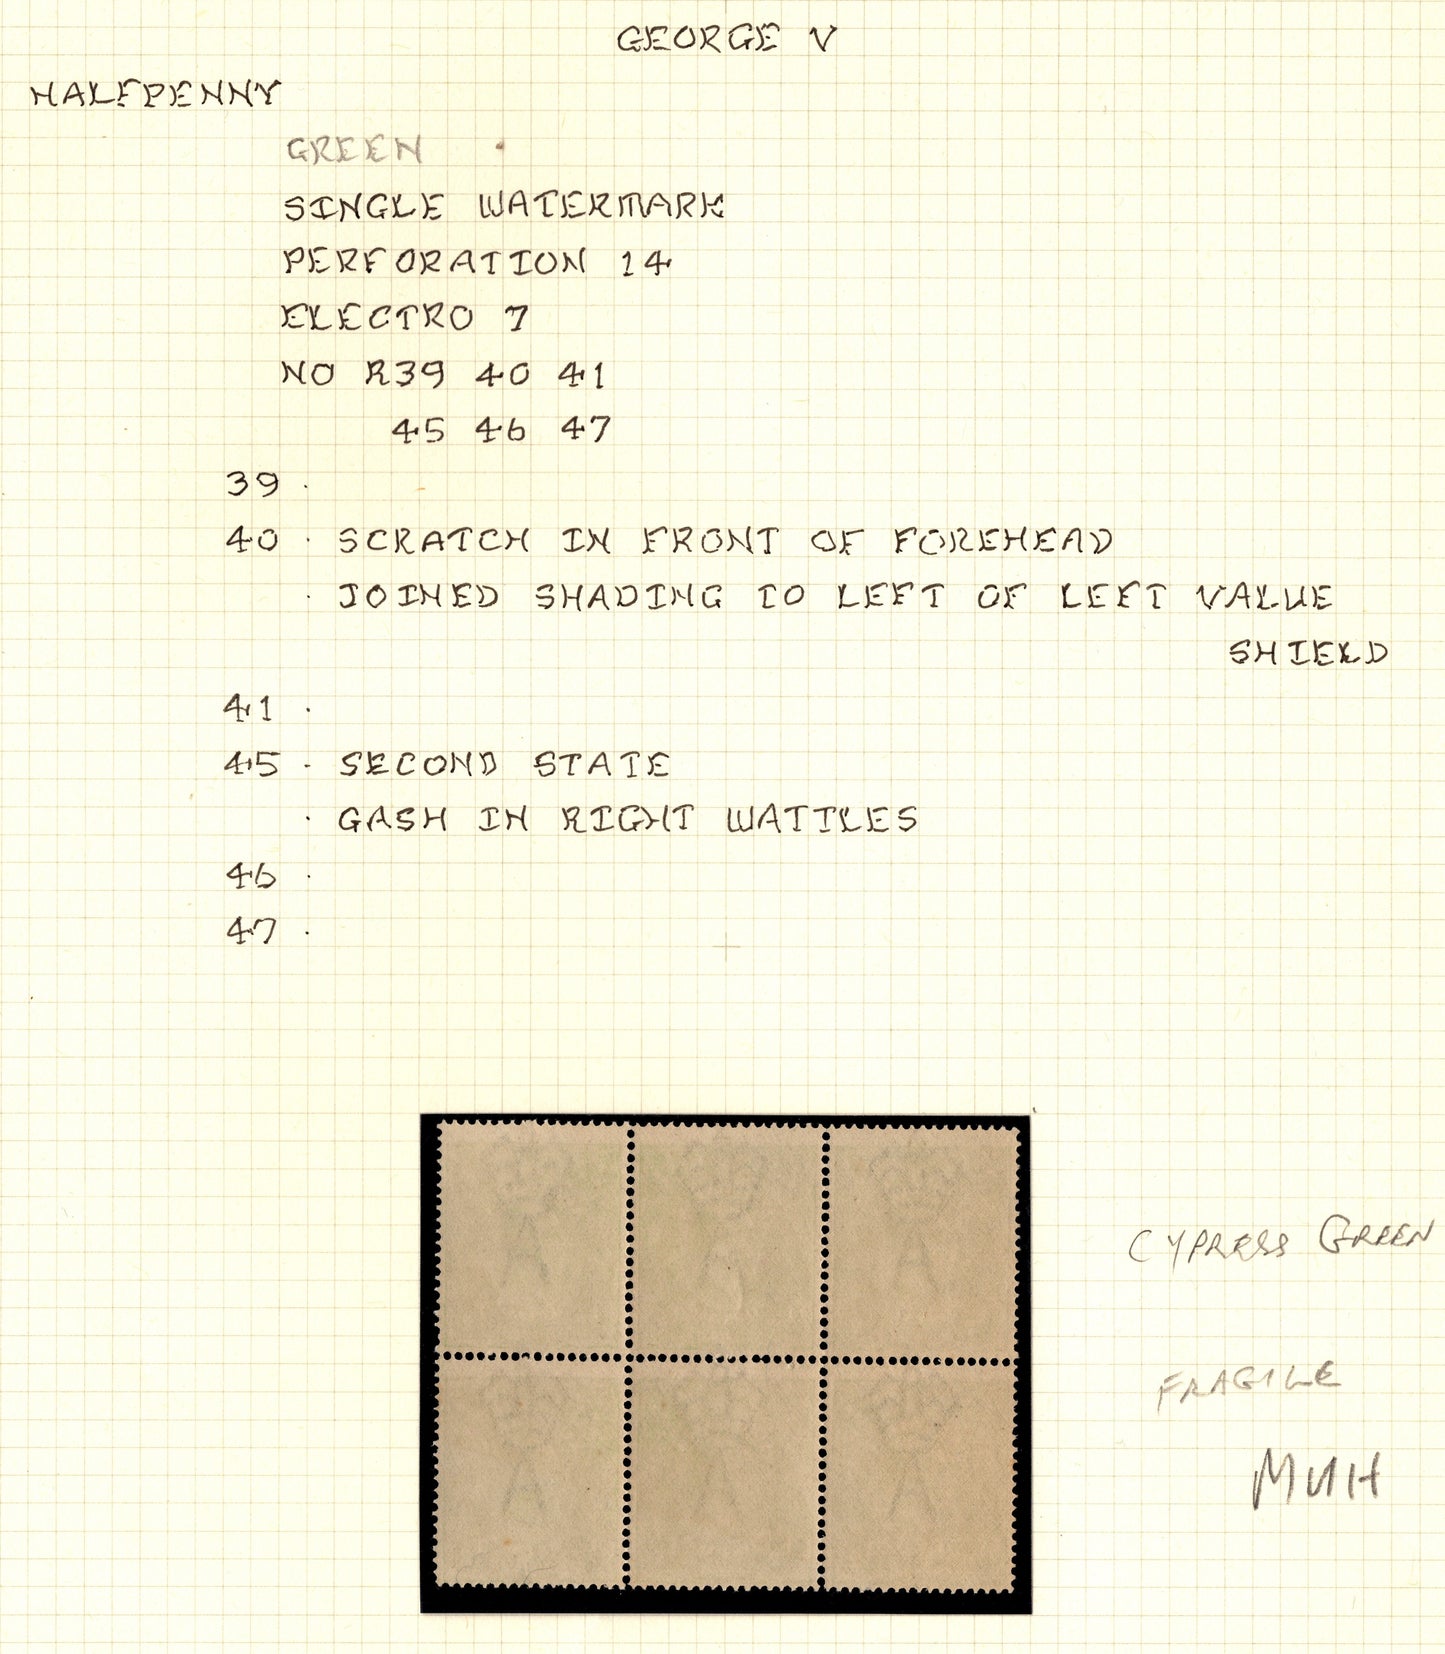 GEORGE V
HALFPENNY
GREEN
SINGLE WATERMARK
PERFORATION 14
ELECTRO 7
NO R39 40 41
45 46 47
39 ·
40 · SCRATCH IN FRONT OF FOREHEAD
· JOINED SHADING TO LEFT OF LEFT VALUE
SHIELD
41 ·
45 · SECOND STATE
· GASH IN RIGHT WATTLES
46 ·
47 ·
A A A
A A A
CYPRESS GREEN
FRAGILE
MUH